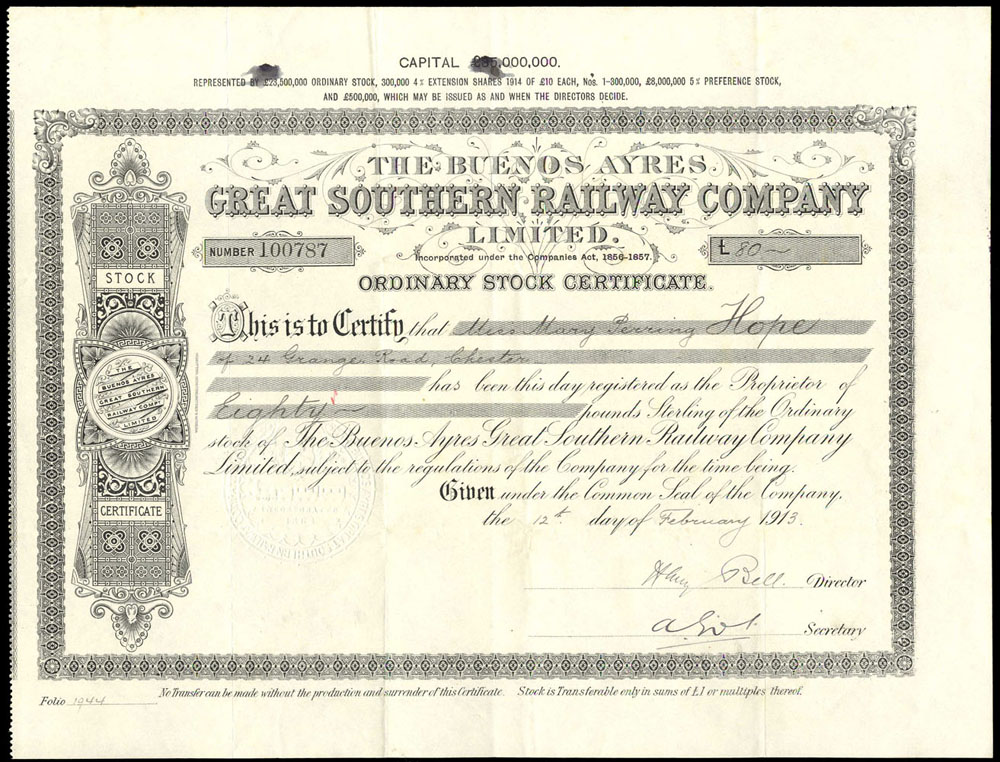 CAPITAL £35,000,000.
REPRESENTED BY £23,500,000 ORDINARY STOCK, 300,000 4% EXTENSION SHARES 1914 OF £10 EACH, Nos. 1-300,000, £8,000,000 5% PREFERENCE STOCK,
AND £500,000, WHICH MAY BE ISSUED AS AND WHEN THE DIRECTORS DECIDE.
THE BUENOS AYRES
GREAT SOUTHERN RAILWAY COMPANY
LIMITED.
NUMBER 100787
£ 80
Incorporated under the Companies Act, 1856-1857.
ORDINARY STOCK CERTIFICATE.
This is to Certify that Miss Mary Perring Hope
of 24 Grange Road, Chester
has been this day registered as the Proprietor of
Eighty pounds Sterling of the Ordinary
stock of The Buenos Ayres Great Southern Railway Company
Limited, subject to the regulations of the Company for the time being.
Given under the Common Seal of the Company,
the 12th day of February 1913.
Henry Bell. Director
Secretary
STOCK
THE
BUENOS AYRES
GREAT SOUTHERN
RAILWAY COMPY
LIMITED
CERTIFICATE
No Transfer can be made without the production and surrender of this Certificate. Stock is Transferable only in sums of £1 or multiples thereof.
Folio 1944